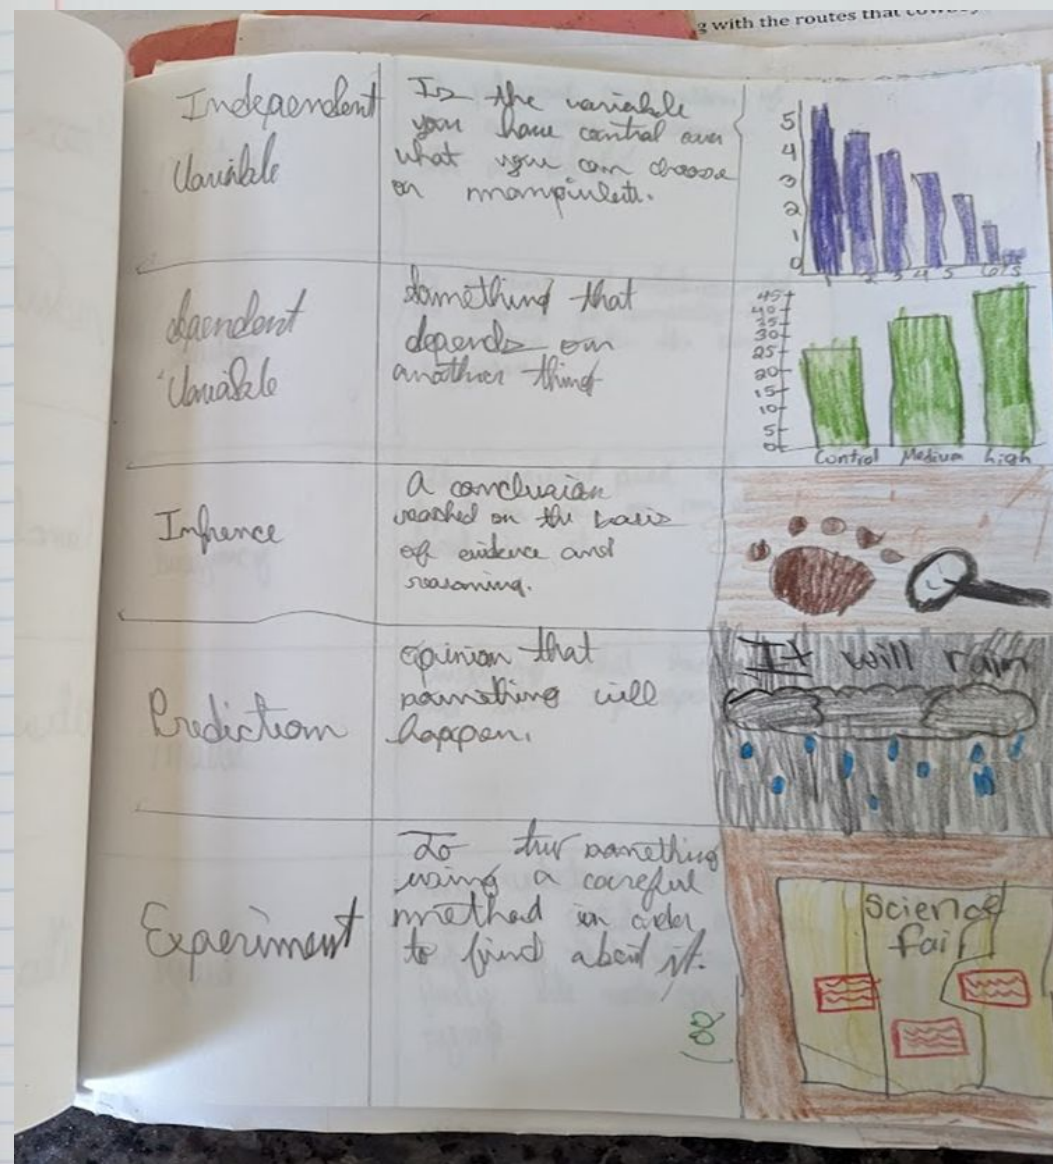 g with the routes that
Independent
Variable
Is the variable
you have control over
what you can choose
or
5
4
3
2
1
0
1 2 3 4 5
dpendent
Variable
Something that
depends on
another thing
45
40
35
30
25
20
15
10
5
0
Control Medium high
Infrence
A conclusion
reached on the basis
of evidence and
reasoning.
Prediction
opinion that
something will
happen.
It will rain
Experiment
To something
using a careful
method in order
to find about it.
Science
fair